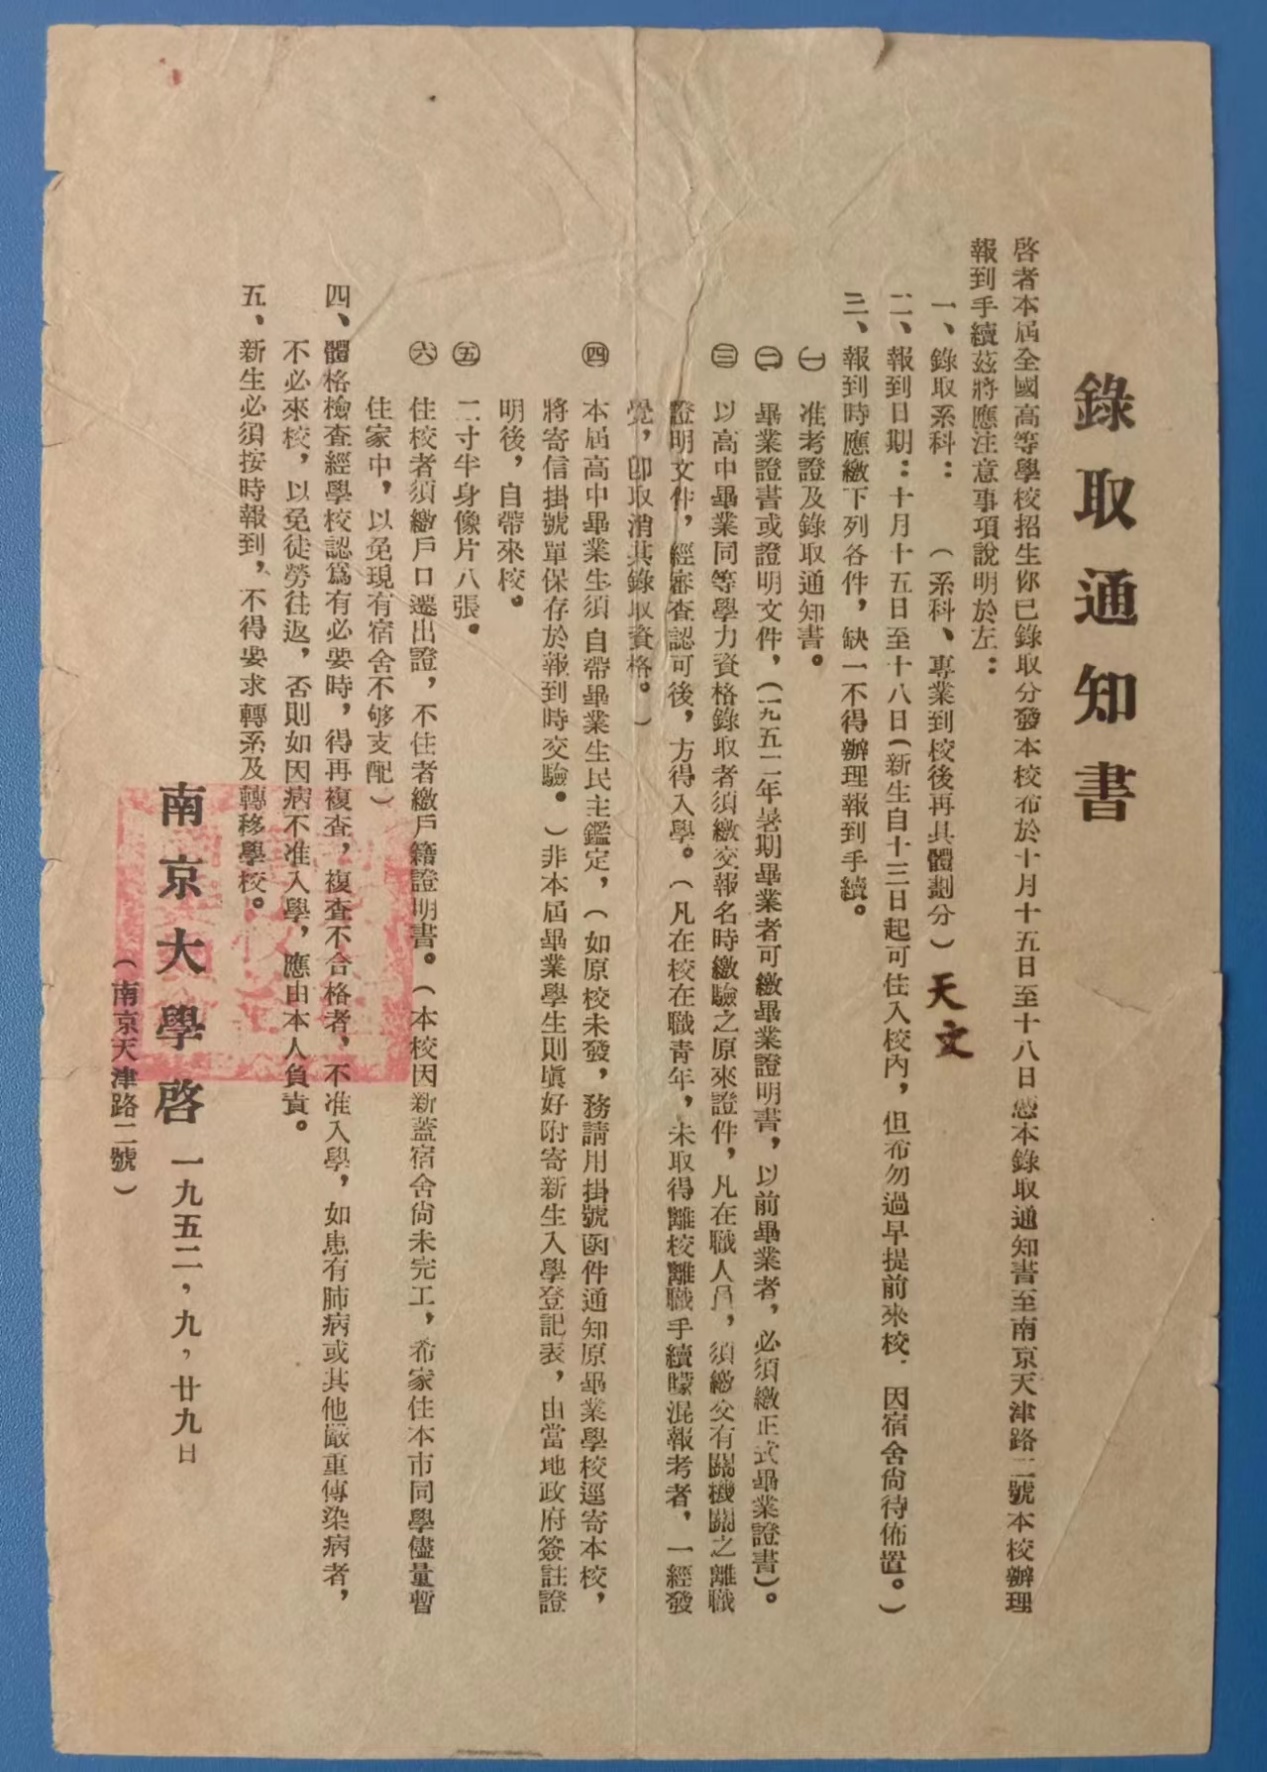 錄取通知書
啓者本屆全國高等學校招生你已錄取分發本校布於十月十五日至十八日憑本錄取通知書至南京天津路二號本校辦理
報到手續茲將應注意事項說明於左：
一、錄取系科：　（系科、專業到校後再具體劃分）天文
二、報到日期：十月十五日至十八日（新生自十三日起可住入校內，但布勿過早提前來校．因宿舍尙待佈置。）
三、報到時應繳下列各件，缺一不得辦理報到手續。
㊀准考證及錄取通知書。
㊁畢業證書或證明文件，（一九五二年暑期畢業者可繳畢業證明書，以前畢業者，必須繳正式畢業證書）。
㊂以高中畢業同等學力資格錄取者須繳交報名時繳驗之原來證件，凡在職人員，須繳交有關機關之離職
證明文件，經審查認可後，方得入學。（凡在校在職靑年，未取得離校離職手續矇混報考者，一經發
覺，卽取消其錄取資格。）
㊃本屆高中畢業生須自帶畢業生民主鑑定，（如原校未發，務請用掛號函件通知原畢業學校逕寄本校，
將寄信掛號單保存於報到時交驗。）非本屆畢業學生則塡好附寄新生入學登記表，由當地政府簽註證
明後，自帶來校。
㊄二寸半身像片八張。
㊅住校者須繳戶口遷出證，不住者繳戶籍證明書。（本校因新蓋宿舍尙未完工，希家住本市同學儘量暫
住家中，以免現有宿舍不够支配）
四、體格檢查經學校認爲有必要時，得再複查，複查不合格者，不准入學，如患有肺病或其他嚴重傳染病者，
不必來校，以免徒勞往返，否則如因病不准入學，應由本人負責。
五、新生必須按時報到，不得要求轉系及轉移學校。
南京大學啓 一九五二，九，廿九日
（南京天津路二號）